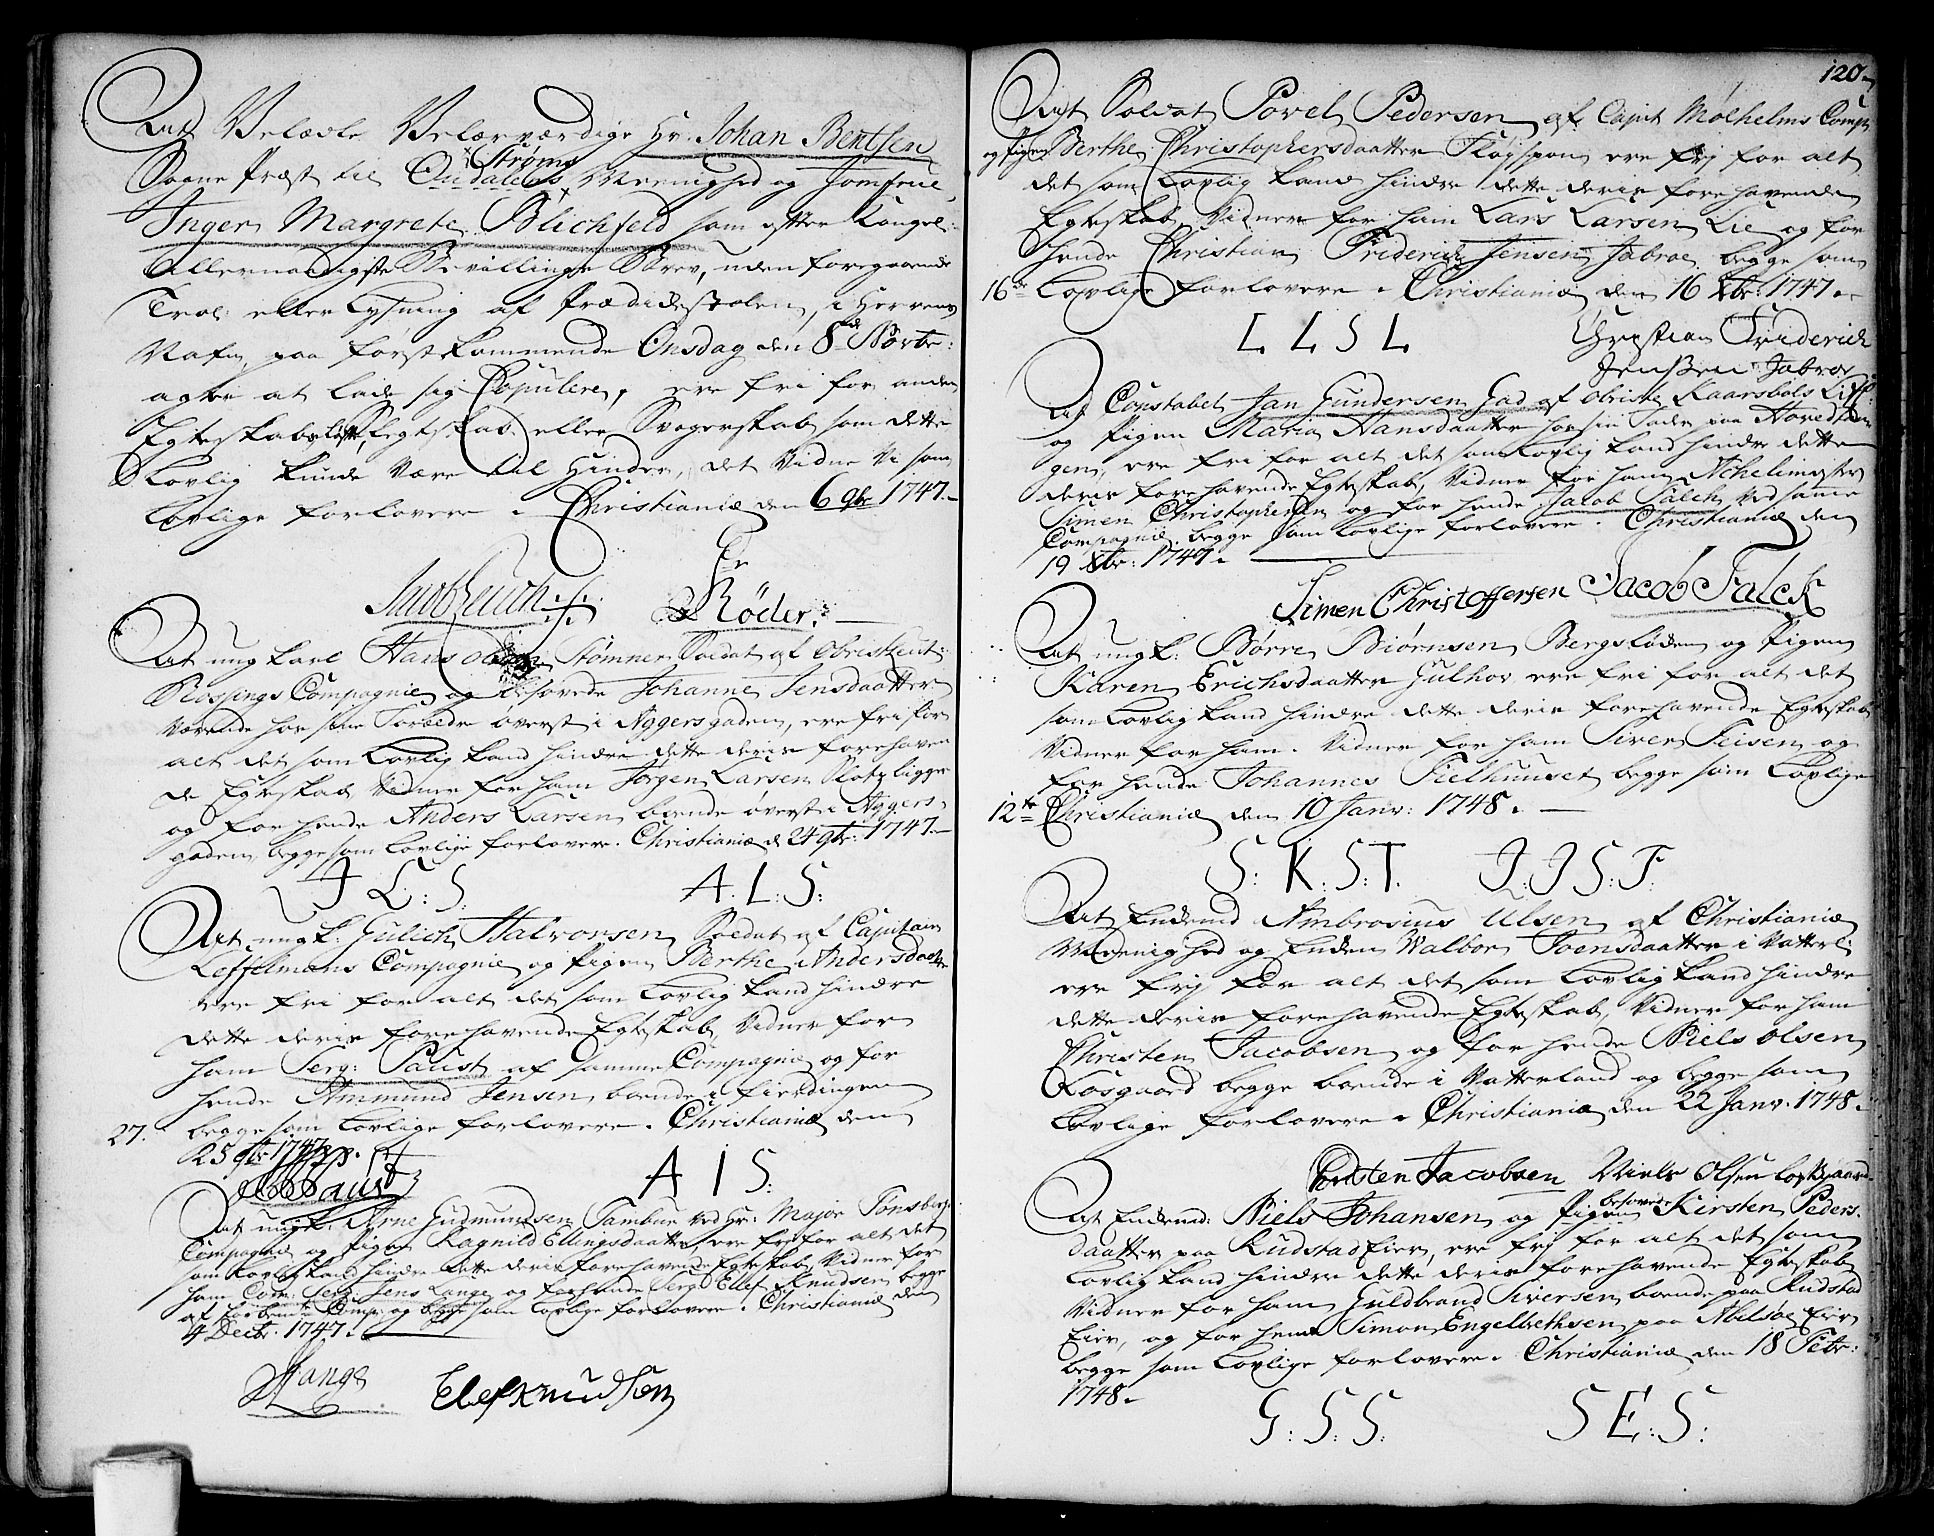 At Velædle Velærværdige Hr. Johan Bentsen
Sogne Præst til Ondalens Meenighed og Jomfrue
Strøms
Inger Margrete Blichfeld som efter Kongel:
Allernaadigste Bevillings Brev, uden foregaaende
Trol: eller Lysning af Prædickestolen, i Herrens
Nafn, paa førstkommende Onsdag den 8de Novbr:
agter at lade sig Copulere, ere fri for anden
Egteskabs løfte, Slegtskab eller Svogerskab som dette
Lovlig kunde være til Hinder, det Vidne Vi som
Lovlige forlovere. Christianiæ den 6 9br 1747.
Røder
At ung Karl Hans Olsen Stømner Soldat af Obristleut:
Rossings Compagnie og b:sovede Johanne Jensdaatter
værende hos sine Forældre øverst i Aggersgaden, ere fri for
alt det som Lovlig kand hindre dette deris forehaven
de Egteskab Vidner for ham Jørgen Larsen Slotz ligger
og for hende Anders Larsen boende øverst i Aggers
gaden, begge som Lovlige forlovere. Christianiæ d 24 9br: 1747.
J L: S. A. L: S:
At ung k: Gulich Halvorsen Soldat af Capitain
Leffelmans Compagnie og Pigen Berthe Andersdaatter
ere fri for alt det som Lovlig kand hindre
dette deris forehavende Egteskab, Vidner for
ham Serg: Paust af samme Compagnie og for
hende Ammund Jensen boende i Fierdingen
begge som Lovlige forlovere. Christianiæ den
27. 25 9br 1747.
Paust A I S:
At ung k. Arne Gudmundsen Tambur ved Hr: Major Tønsbergs
Compagnie og Pigen Ragnild Ellingsdaatter, ere fri for alt det
som Lovlig kand hindre dette deris forehavende Egteskab, Vidner for
ham Com: Serg: Jens Lange og for hende Serg: Elef Knudsen begge
af Comp: og begge som Lovlige forlovere. Christianiæ den
4 Decbr. 1747.
Lange Elef Knudsen
120.
At Soldat Povel Pedersen af Capit Mølhelms Comp
og Pigen Berthe Christophersdaatter Fløyspon ere frj for alt
det som Lovlig kand hindre dette deris forehavende
Egteskab, Vidner for ham Lars Larsen Lie og for
hende Christian Friderich Jensen Jabroe begge som
16de Lovlige forlovere. Christianiæ den 16 Xbr: 1747.
L. L S L Christian Friderich
Jenssen Jabroe
At Constabel Jan Gundersen Gad af Obriste Kaarsbøls Liff
og Pigen Maria Hansdaatter hos sin Fader paa Hovedtan
gen, ere fri for alt det som Lovlig kand hindre dette
deris forehavende Egteskab, Vidner for ham
Simen Christophersen og for hende Jacob Falck ved samme
Compagnie, begge som Lovlige forlovere. Christianiæ den
19 Xbr: 1747.
Simen Christoffersen Jacob Falck
At ung k: Børre Biørnsen Bergsløden og Pigen
Karen Erichsdaatter Gulhov ere fri for alt det
som Lovlig kand hindre dette deris forehavende Egteskab
Vidner for ham. Vidner for ham Siver Feisen og
for hende Johannes Fielhuuset begge som Lovlige
12te Christianiæ den 10 Janv: 1748.
S: K: S: T. J: J S: F:
At Enkemd Ambrosius Ulsen af Christianiæ
Meenighed og Enken Walbor Joensdaatter i Vatterl:
ere frj for alt det som Lovlig kand hindre
dette deris forehavende Egteskab, Vidner for ham
Christen Jacobsen og for hende Niels Olsen
Losgaard begge boende i Vatterland og begge som
Lovlige forlovere. Christianiæ den 22 Janv. 1748.
Christen Jacobsen Niels Olsen Losgaard
At Enkemd: Niels Johansen og Pigen besovede Kirsten Peders
daatter paa Rudstad Eier, ere frj for alt det som
Lovlig kand hindre dette deris forehavende Egteskab
Vidner for ham Guldbrand Siversen boende paa Rudstad
Eier, og for hende Simon Engelbethsen paa Abilsøe Eier
begge som Lovlige forlovere. Christianiæ den 18 Febr:
1748.
G: S: S: S E: S: